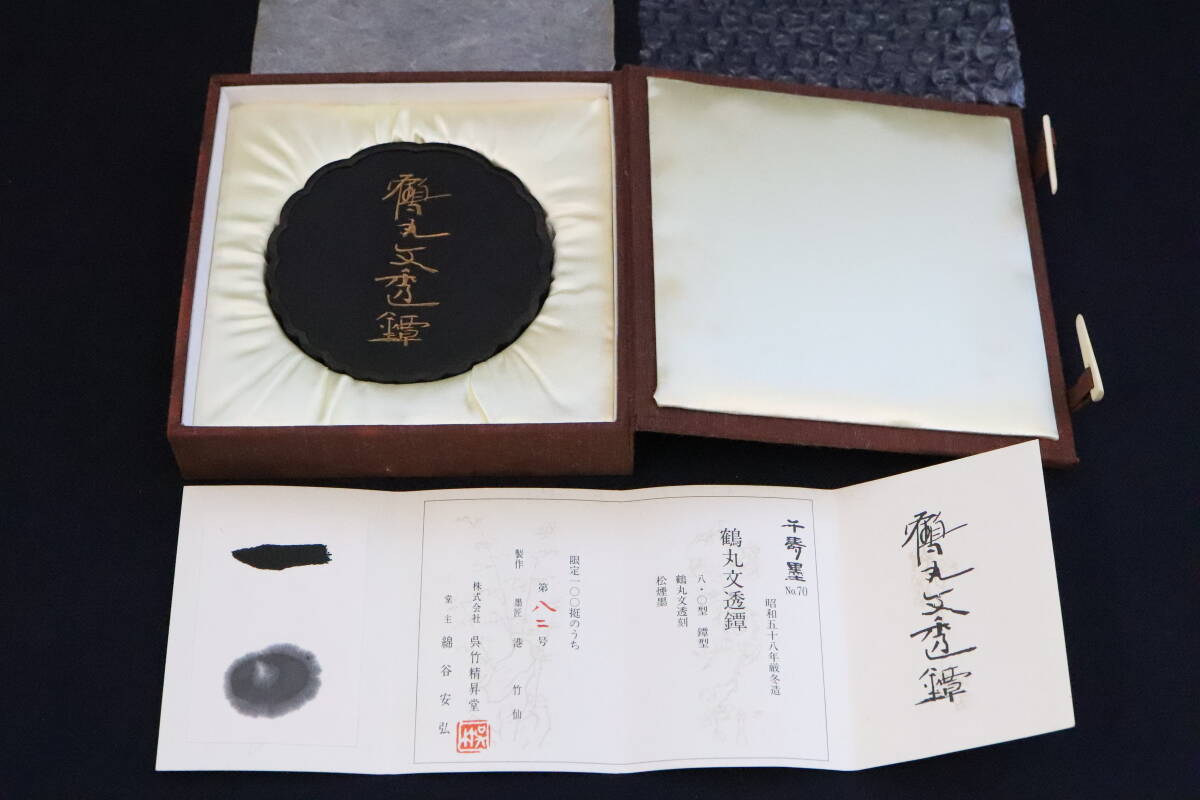 鶴丸文透鐔
千寿墨 No.70
昭和五十八年厳冬造
鶴丸文透鐔
八・〇型 鐔型
鶴丸文透刻
松煙墨
限定一〇〇挺のうち
第八二号
製作 墨匠 港竹仙
株式会社 呉竹精昇堂
堂主 綿谷安弘
鶴丸文透鐔